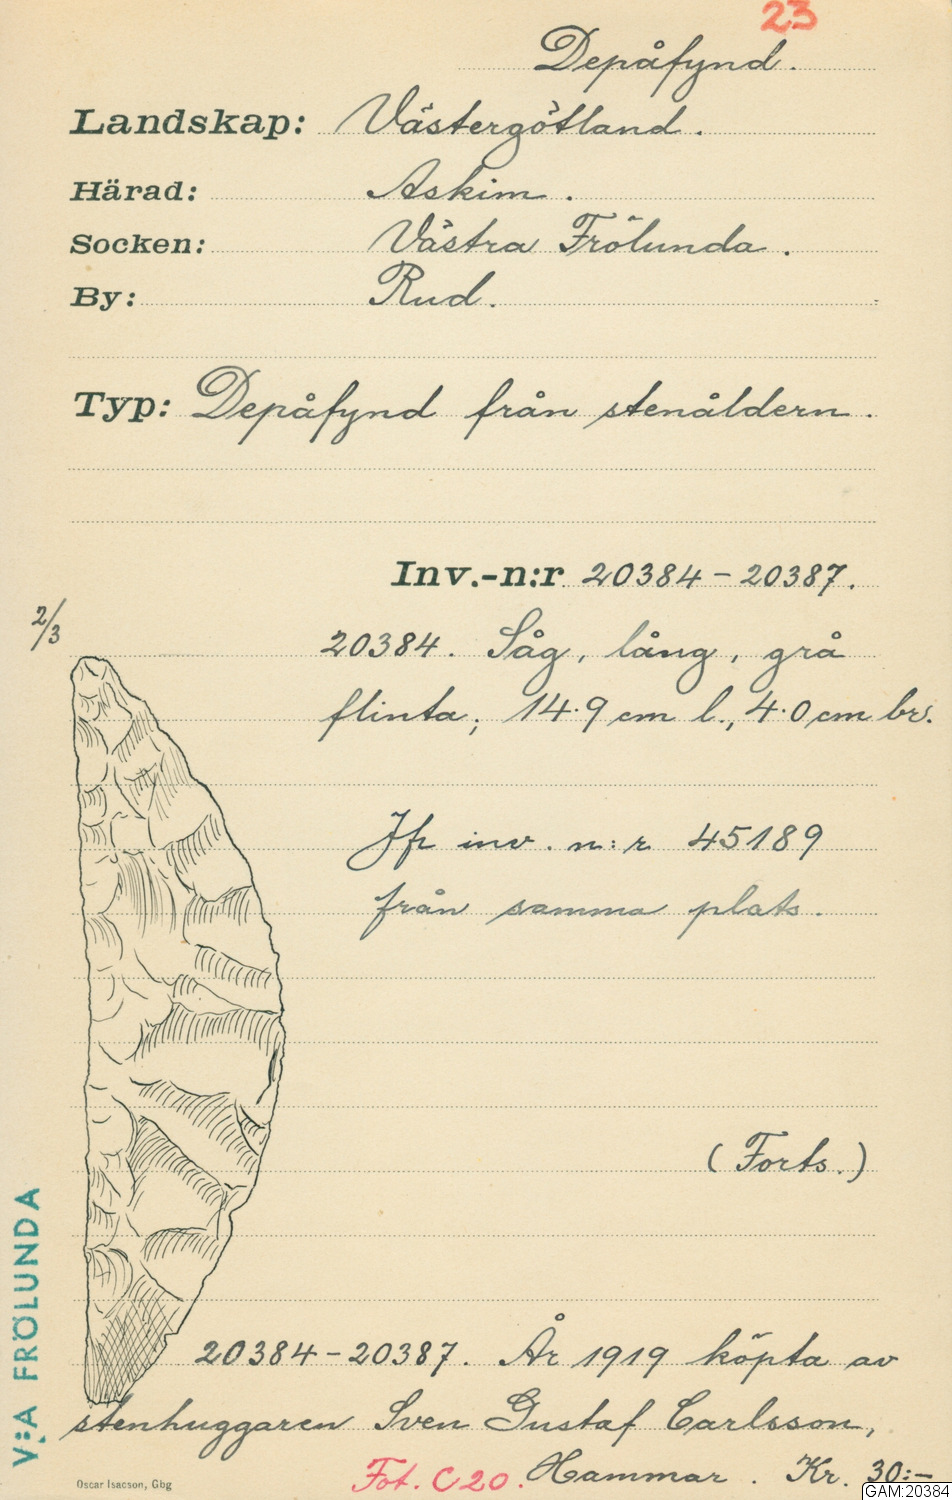 23
Depåfynd.
Landskap: Västergötland.
Härad: Askim.
Socken: Västra Frölunda.
By: Rud.
Typ: Depåfynd från stenåldern.
Inv.-n:r 20384-20387.
2/3
20384. Såg, lång, grå
flinta; 14.9 cm l., 4.0 cm br.
Jfr inv. n:r 45189
från samma plats.
(Forts.)
20384-20387. År 1919 köpta av
stenhuggaren Sven Gustaf Carlsson,
Fot. C 20. Hammar. Kr. 30:-
V:A FRÖLUNDA
Oscar Isacson, Gbg
GAM:20384